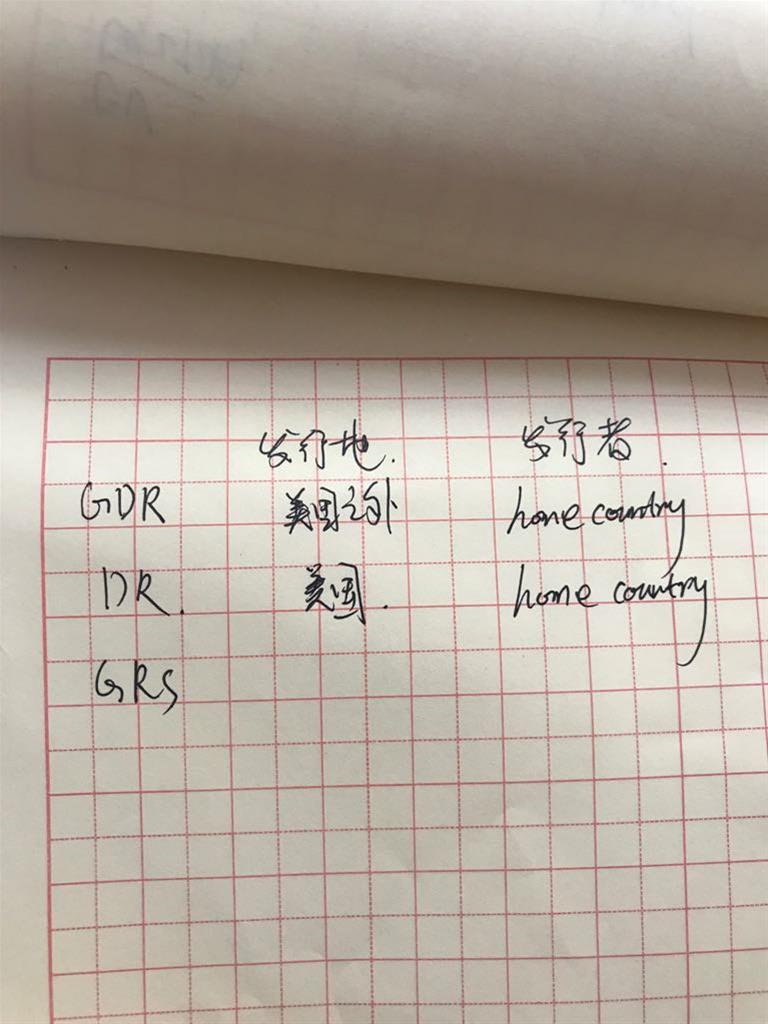 发行地. 发行者.
GDR 美国之外 home country
DR. 美国. home country
GRS